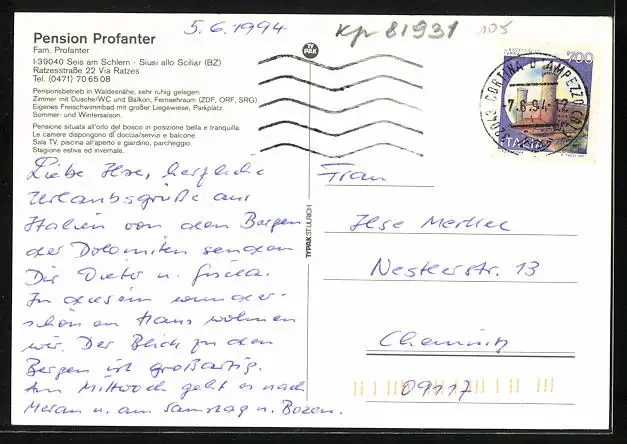 5.6.1994
kp 81931
105
Pension Profanter
Fam. Profanter
I-39040 Seis am Schlern · Siusi allo Sciliar (BZ)
Ratzesstraße 22 Via Ratzes
Tel. (0471) 70 65 08
Pensionsbetrieb in Waldesnähe, sehr ruhig gelegen.
Zimmer mit Dusche/WC und Balkon, Fernsehraum (ZDF, ORF, SRG)
Eigenes Freischwimmbad mit großer Liegewiese, Parkplatz.
Sommer- und Wintersaison.
Pensione situata all'orlo del bosco in posizione bella e tranquilla.
Le camere dispongono di doccia/servizi e balcone.
Sala TV, piscina all'aperto e giardino, parcheggio.
Stagione estiva ed invernale.
Liebe Ilse, herzliche
Urlaubsgrüße aus
Italien von den Bergen
der Dolomiten senden
Dir Dieter u. Gisela.
In diesem wunder-
schönen Haus wohnen
wir. Der Blick zu den
Bergen ist großartig.
Am Mittwoch geht es nach
Meran u. am Samstag n. Bozen.
TYPAK
TYPAK ST. ULRICH
700
32043 CORTINA D'AMPEZZO
-7.6.94-17
ITALIA
Frau
Ilse Merkel
Nestlerstr. 13
Chemnitz
09117